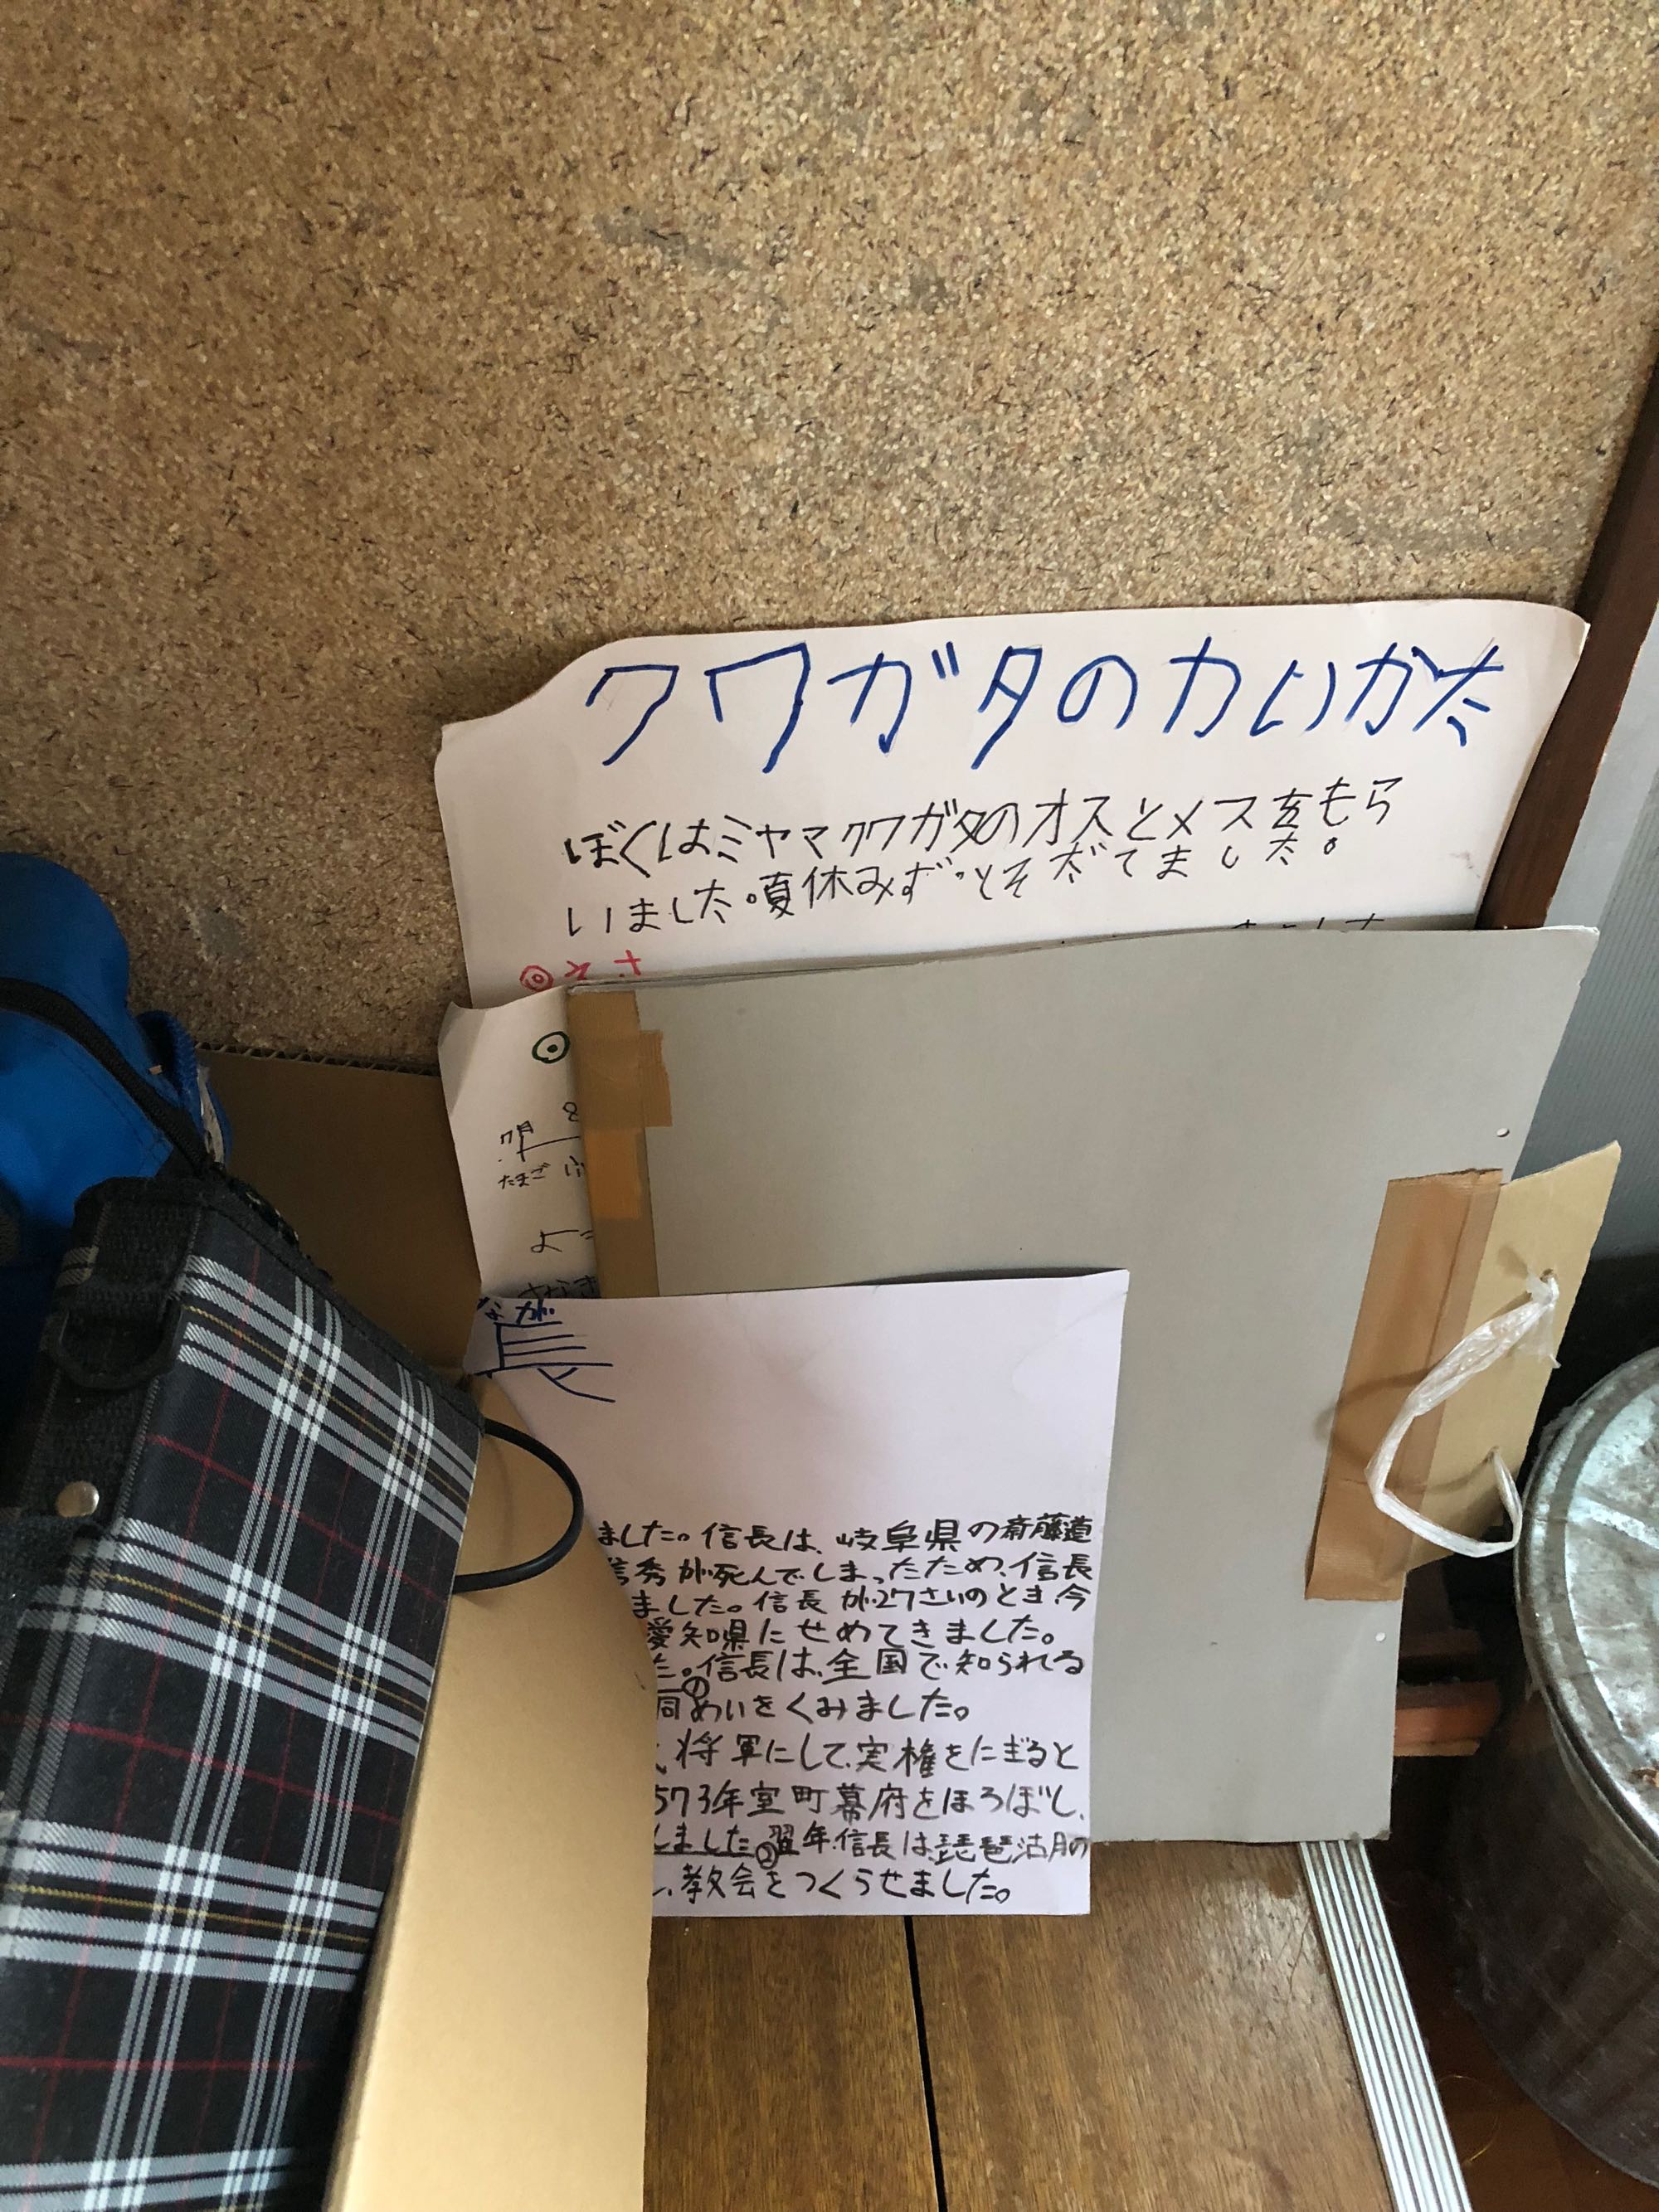 クワガタのカいかた
ぼくはミヤマクワガタのオスとメスをもら
いました。夏休みずっとそだてました。
たまご
なが
長
ました。信長は、岐阜県の斎藤道
信秀が死んでしまったため、信長
ました。信長が27さいのとき、今
愛知県にせめてきました。
た。①信長は、全国で知られる
同めいをくみました。
、将軍にして、実権をにぎると
573年室町幕府をほろぼし、
しました。②翌年、信長は、琵琶湖の
し、教会をつくらせました。